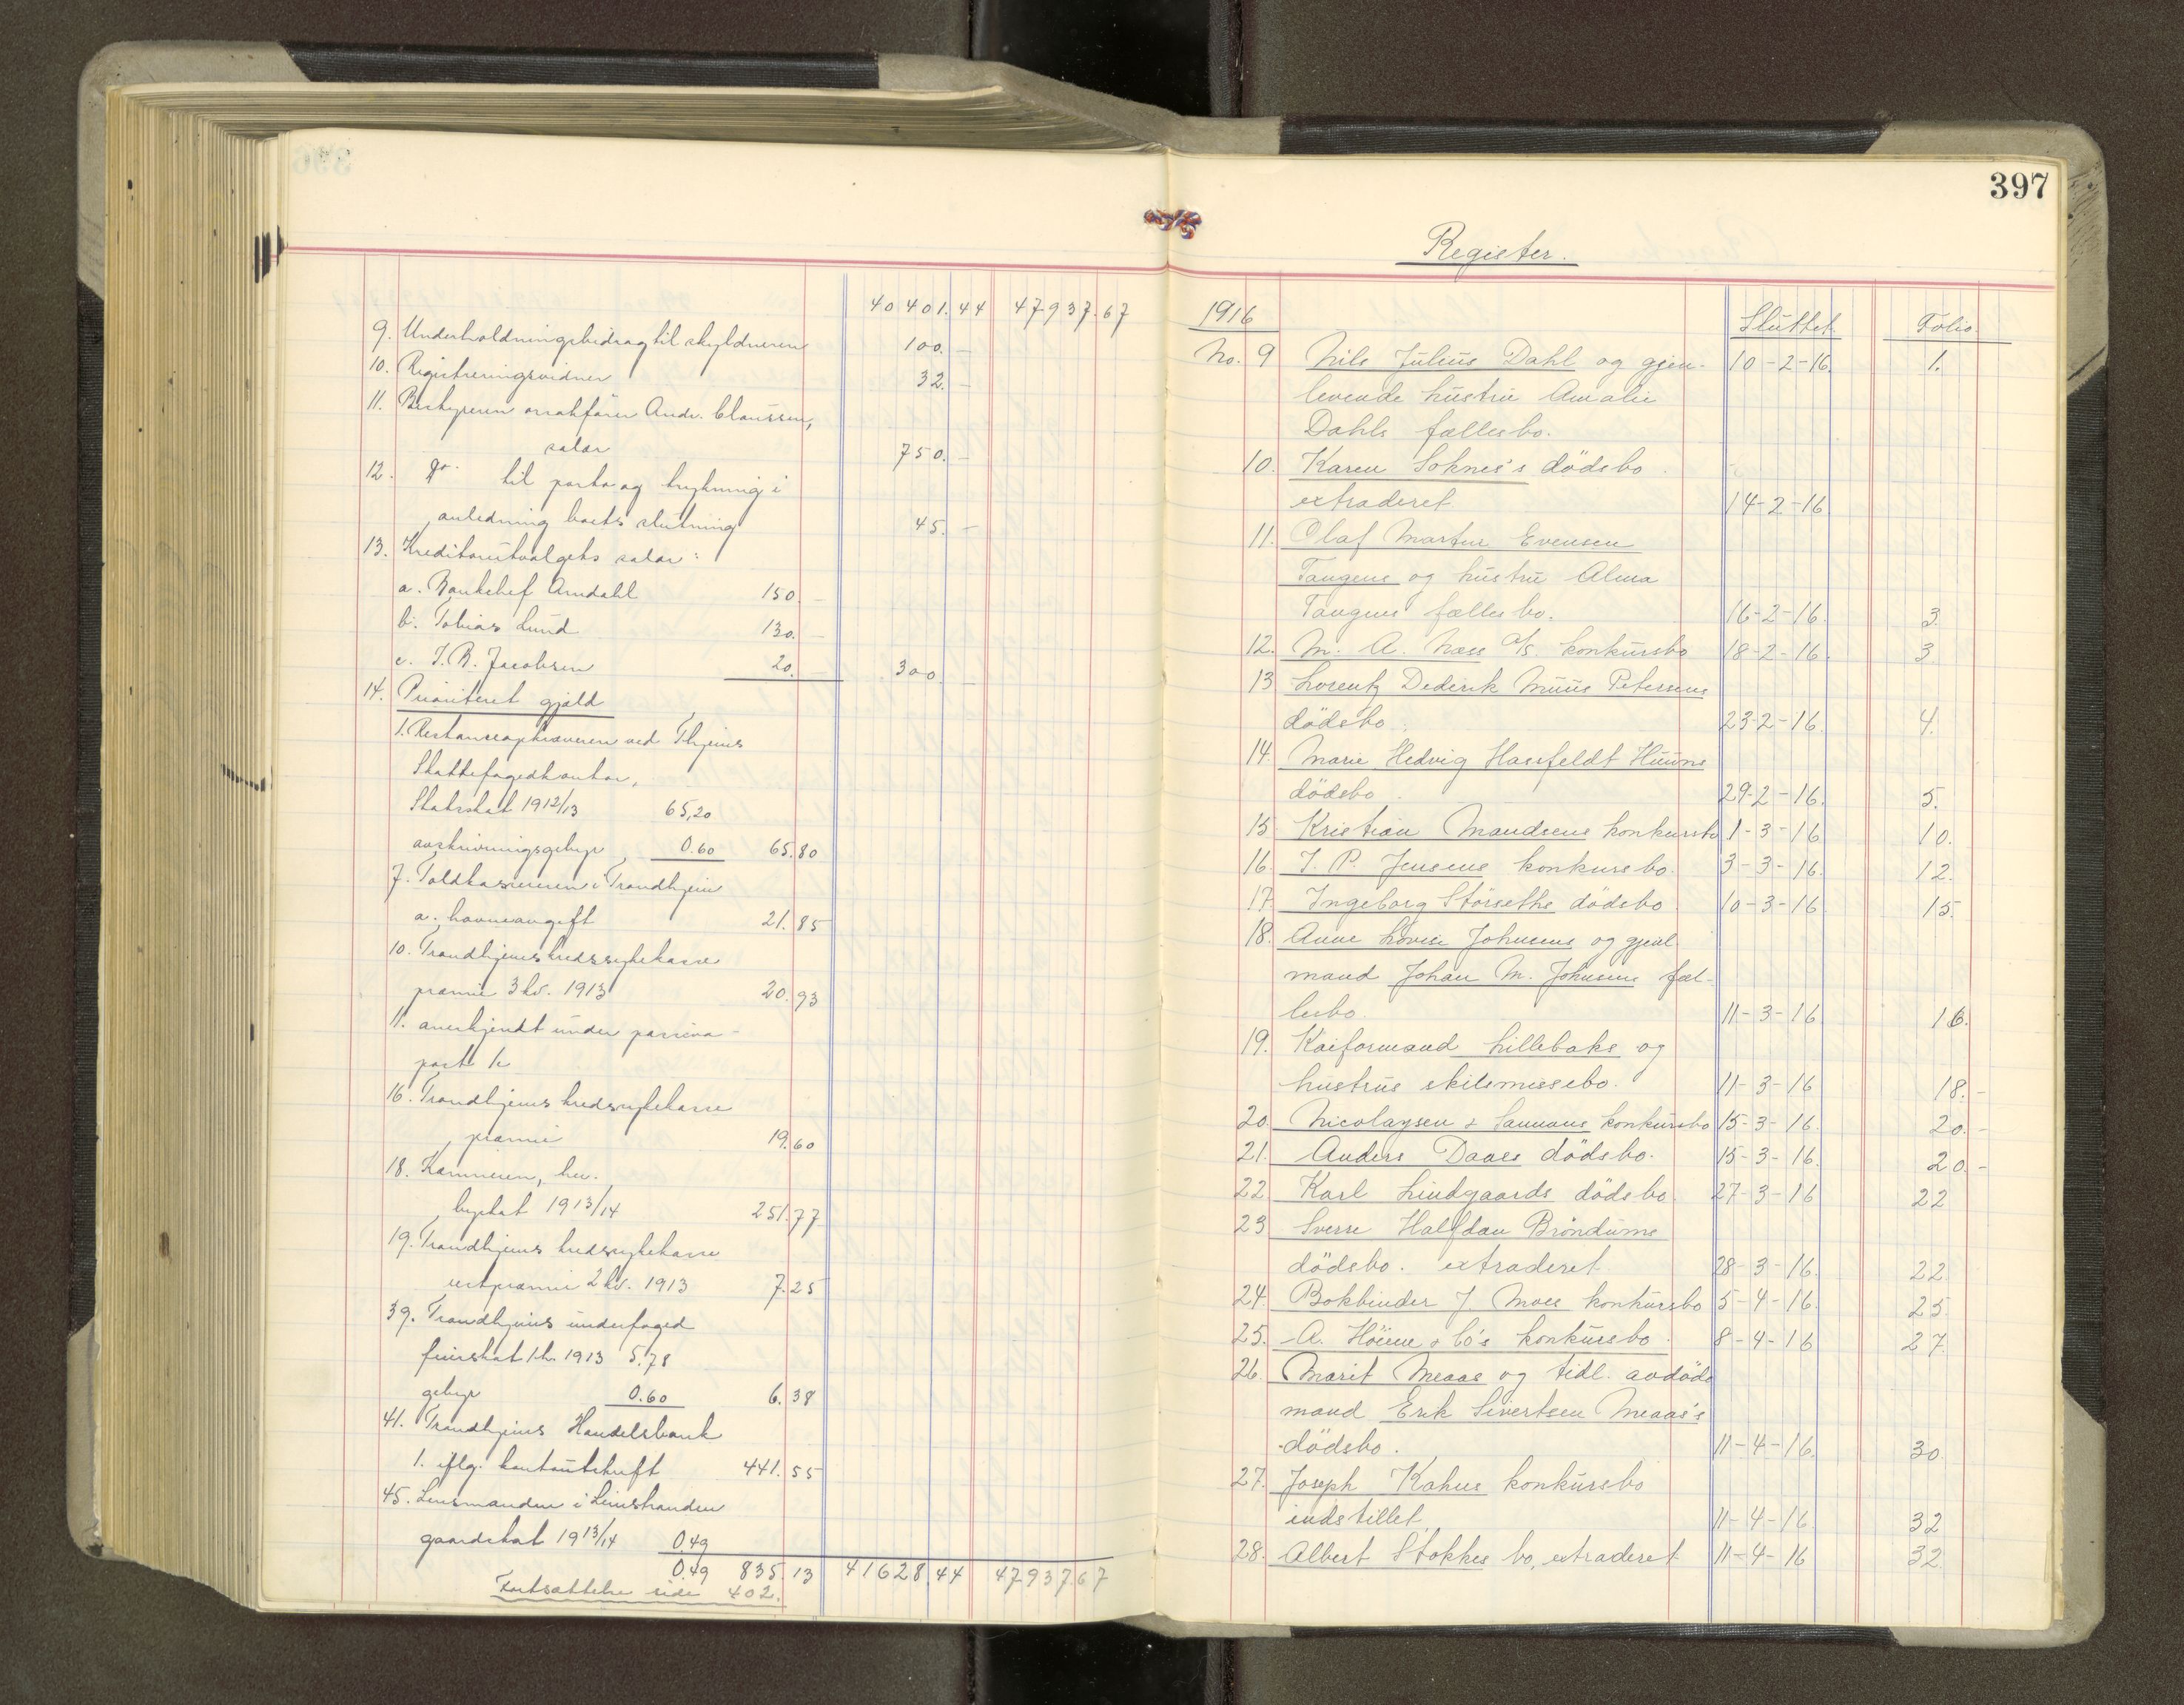 40401.44 47937.67
9. Underholdningsbidrag til skyldneren 100.-
10. Registreringsvidner 32.-
11. Bestyreren orsakfører Andr. Claussen,
salær 750.-
12. do. til porto og trykning i
anledning boets slutning 45.-
13. Kreditorutvalgets salær:
a. Bankchef Arndahl 150.-
b. Tobias Lund 130.-
c. I. R. Jacobsen 20.- 300.-
14. Prioritert gjæld
1. Restanceopkræveren ved Thjems
Skattefogedkontor,
Statsskat 1912/13 65,20
avskrivningsgebyr 0.60 65.80
7. Toldkassereren i Trondhjem
a. havneavgift 21.85
10. Trondhjems kredssykekasse
præmie 3 kv. 1913 20.93
11. anerkjendt under passiva-
post 1c
16. Trondhjems kredssykekasse
præmie 19.60
18. Kæmneren, her.
byskat 1913/14 251.77
19. Trondhjems kredssykekasse
restpræmie 2 kv. 1913 7.25
39. Trondhjems underfoged
1h. 1913 5.78
gebyr 0.60 6.38
41. Trondhjems Handelsbank
1. iflg. kontoutskrift 441.55
45. Lensmanden i Leinstranden
gaardskat 1913/14 0.49
0.49 835.13 41628.44 47937.67
Fortsættelse side 402.
397
Register.
1916 Sluttet Folio
No. 9 Nils Julius Dahl og gjen- 10-2-16. 1.
levende hustru Amalie
Dahls fællesbo.
10. Karen Soknes's dödsbo.
extraderet 14-2-16
11. Olaf Martin Evensen
Tangens og hustru Alma
Tangens fællesbo. 16-2-16. 3.
12. M. A. Næss A/S. konkursbo 18-2-16. 3
13 Lorentz Dederik Muus Petersens
dödsbo. 23-2-16. 4.
14. Marie Hedvig Hassfeldt Huuns
dödsbo. 29-2-16. 5.
15 Kristian Mandsens konkursbo 1-3-16 10.
16. I. P. Jensens konkursbo. 3-3-16. 12.
17. Ingeborg Störsethe dödsbo 10-3-16 15.
18. Anne Lovise Johnsens og gjenl.
mand Johan M. Johnsens fæl-
lesbo. 11-3-16 16.
19. Kaiformand Lillebaks og
hustrus skilsmissebo. 11-3-16 18.-
20. Nicolaysen & Sannans konkursbo 15-3-16. 20.-
21. Anders Daaes dödsbo. 15-3-16. 20.-
22 Karl Lindgaards dödsbo. 27-3-16 22
23 Sverre Halfdan Bröndums
dödsbo. extraderet 28-3-16. 22.
24. Bokbinder J. Moes konkursbo 5-4-16. 25.
25. A. Höiene & Co's konkursbo. 8-4-16 27.
26. Marit Meaas og tidl. avdöde
mand Erik Sivertsen Meaas's
dödsbo. 11-4-16. 30.
27. Joseph Kahns konkursbo
indstillet 11-4-16 32
28. Albert Stokkes bo, extraderet 11-4-16 32.